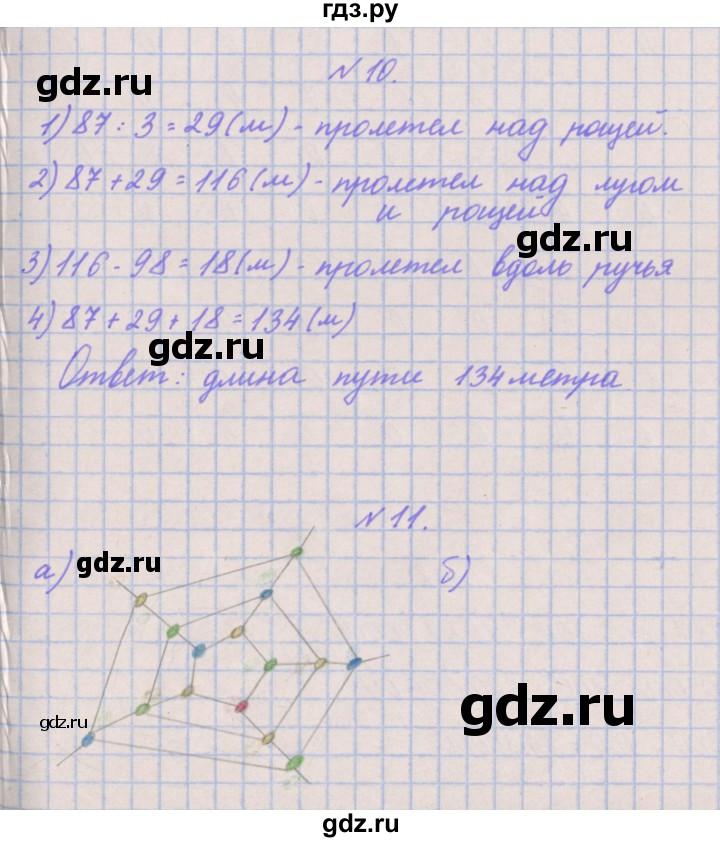 гдз.ру
gdz.ru
N10.
1) 87 : 3 = 29 (м) - пролетел над рощей.
2) 87 + 29 = 116 (м) - пролетел над лугом
и рощей
gdz.ru
3) 116 - 98 = 18 (м) - пролетел вдоль ручья
4) 87 + 29 + 18 = 134 (м)
gdz.ru
Ответ: длина пути 134 метра
N11.
а)
gdz.ru
б)
gdz.ru
gdz.ru
gdz.ru